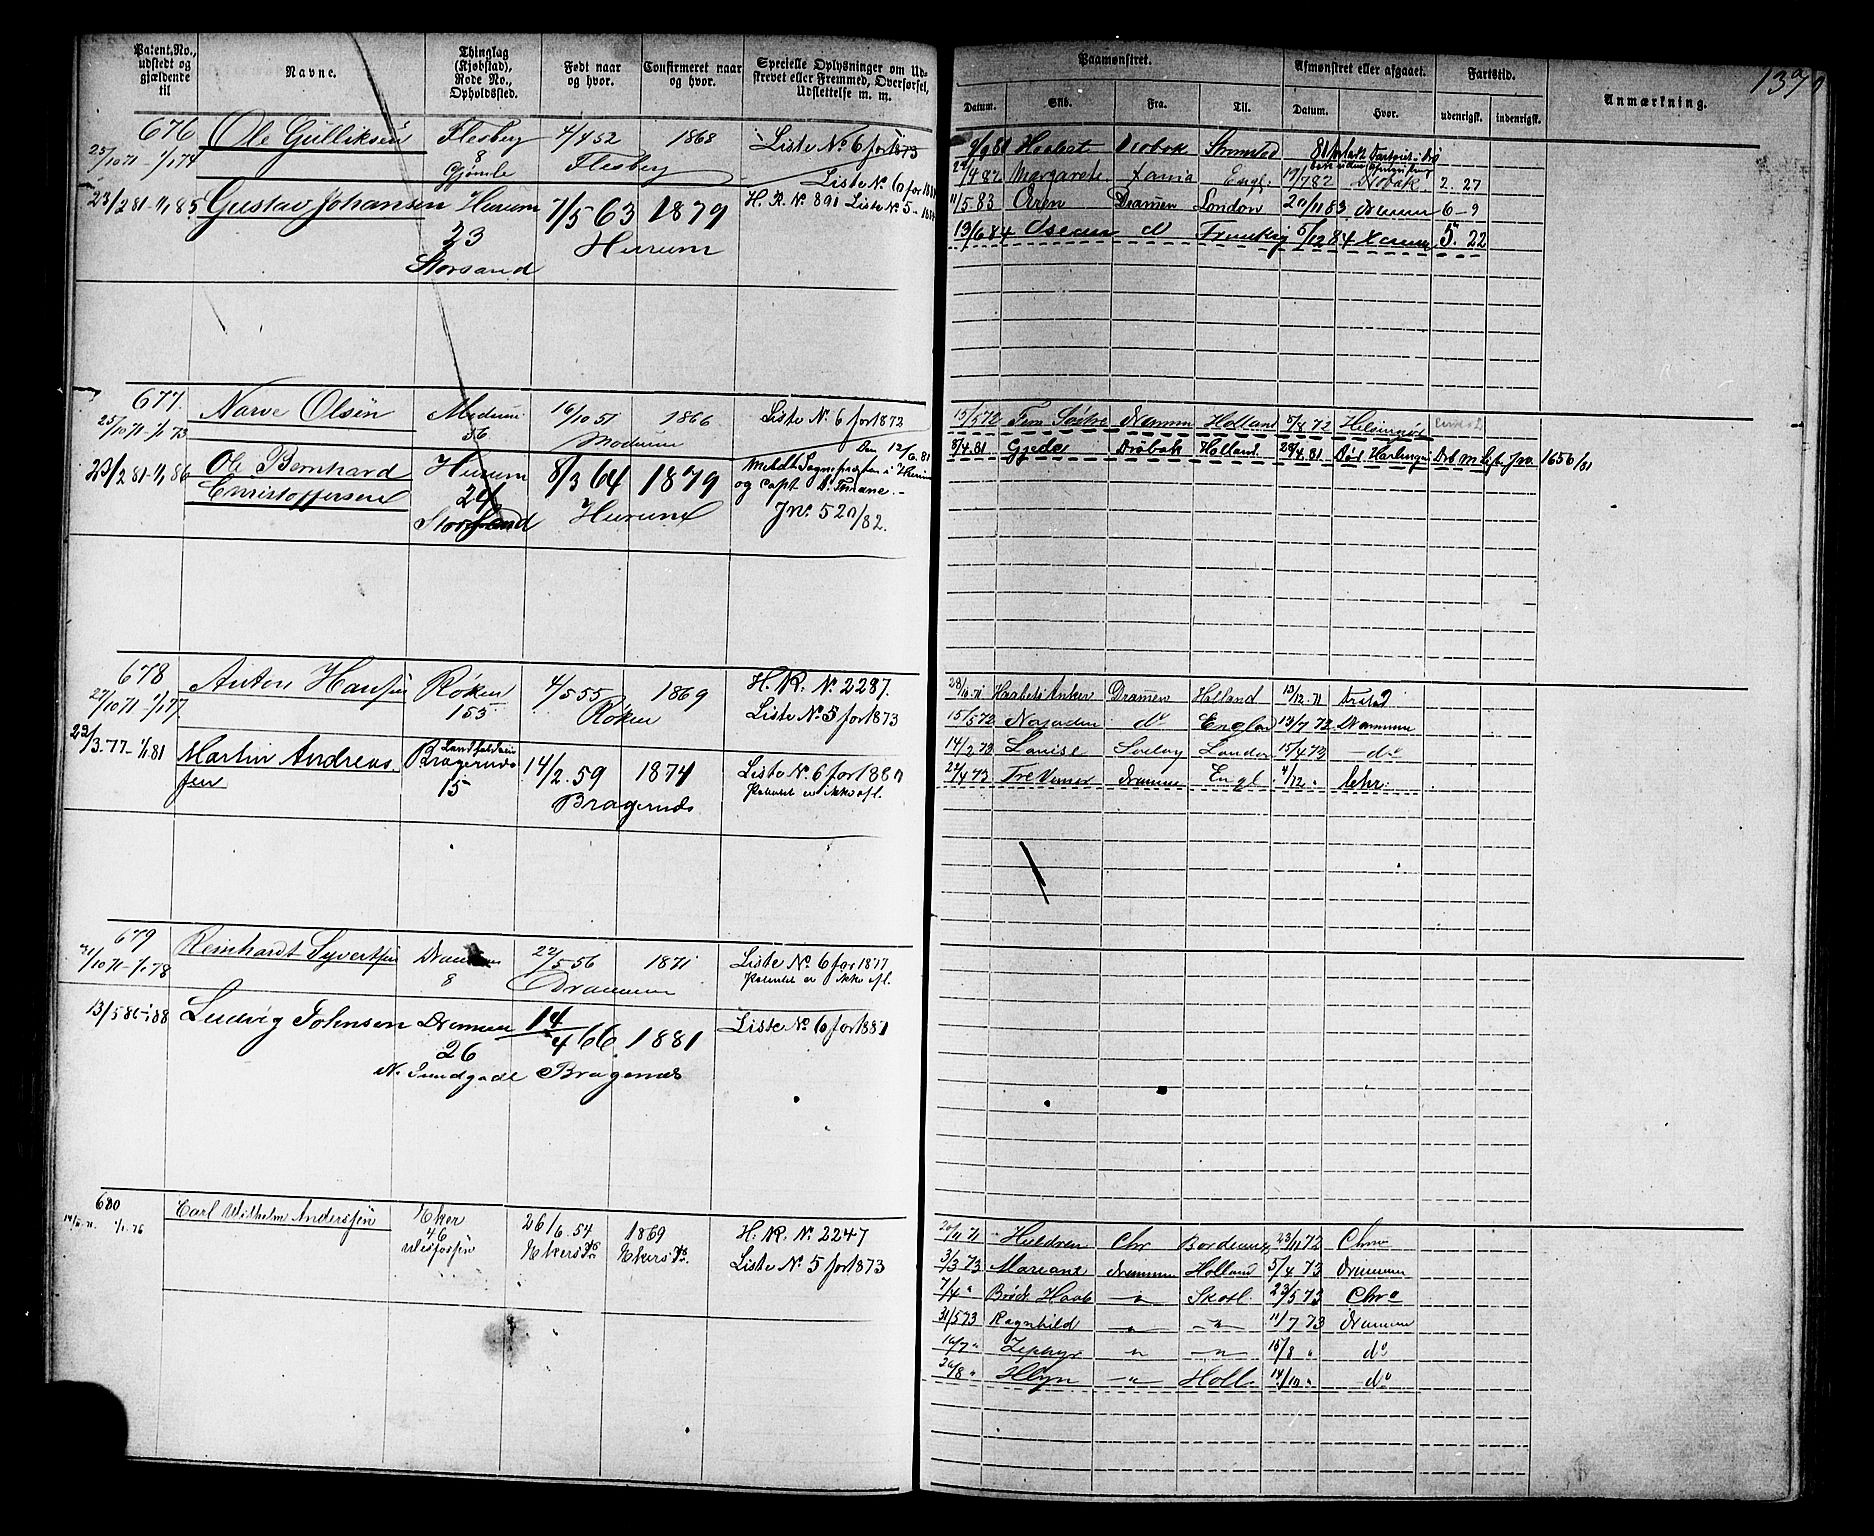 Patent, No., udstedt og gjældende til
Navne.
Thinglag (Kjøbstad), Rode No., Opholdssted.
Født naar og hvor.
Confirmeret naar og hvor.
Specielle Oplysninger om Udskrevet eller Fremmed, Overførsel, Udslettelse m. m.
676
25/10 71 - 1/1 74
Ole Gulliksen
Flesberg
8
4/4 52
Flesberg
1868
Liste No 6 for 1873
Liste No 6 for
23/2 81 - 1/1 85
Gustav Johansen
Hurum
23
Storsand
7/5 63
Hurum
1879
H. R. No 891 Liste No 5 -
677.
25/10 71 - 1/1 73
Narve Olsen
Modum
56
16/10 51
Modum
1866
Liste No 6 for 1872
23/2 81 - 1/1 86
Ole Bernhard
Christoffersen
Hurum
24
Storsand
8/3 64
Hurum
1879
Den 12/6 81
og Capt
Jno. 520/82.
678
27/10 71 - 1/1 77.
Anton Hansen
Røken
155
4/5 55
Røken
1869
H. R. No. 2287.
Liste No. 5 for 1873
23/3 77 - 1/1 81
Martin Andreas
sen
Bragernes
15
14/2. 59
Bragernes
1874
Liste No. 6 for 1880
Patentet er ikke afl.
679
31/10 71 - 1/1 78
Reinhardt Syvertsen
Drammen
8
22/5 56
Drammen
1871
Liste No. 6 for 1877
Patentet er ikke afl.
13/5 86 - 88
Ludvig Johnsen
Drammen
26
N. Sundgade
14/4 66.
Bragernes
1881
Liste No. 6 for 1887
680
1/1. 76
Carl Wilhelm Anderssen
Eker
46
Vesfossen
26/6. 54
Ekers
1869
Ekers
H. R. No. 2247
Liste No. 5 for 1873
Paamønstret.
Afmønstret eller afgaaet.
Fartstid.
Anmærkning.
Datum.
Skib.
Fra.
Til.
Datum.
Hvor.
udenrigsk.
indenrigsk.
9/9 81 Haabet Drøbak Strømstad
24/4 82 Margarete Engl. 17/7 82 Drøbak 2. 27
11/5 83 Ørnen Dramen London 20/11 83 Dramen 6 - 9
13/6 84 Oscar d 5/12 84 5. 22
15/5 72 Fem Søstre Drammen Holland 5/4 72 Helsingør
8/4. 81 Gjeda Drøbak Holland 28/4. 81 Harlingen Jno. 1650/81
28/10. 71 Haabets Anker Dramen Holland 13/12. 71
15/5 72 do England 13/7 72 Drammen
14/2. 73 Louise Svelvig London 15/4 73 - do
22/4 73 Tre Venner Drammen Engl. 4/12 " Chr.
20/11 71 Huldren Chr Bordeaux 23/11 72 Chra
3/3 73 Mariane Drammen Holland 5/4 73 Drammen
7/4 " Brødr. Haab - " - Skotl. 23/5 73 Chra
31/5 73 Ragnhild - " - - " - 11/7 73 Drammen
16/7 " Zephyr " - " - 15/8 " do
20/8 " - " - Holl. 14/10 " do